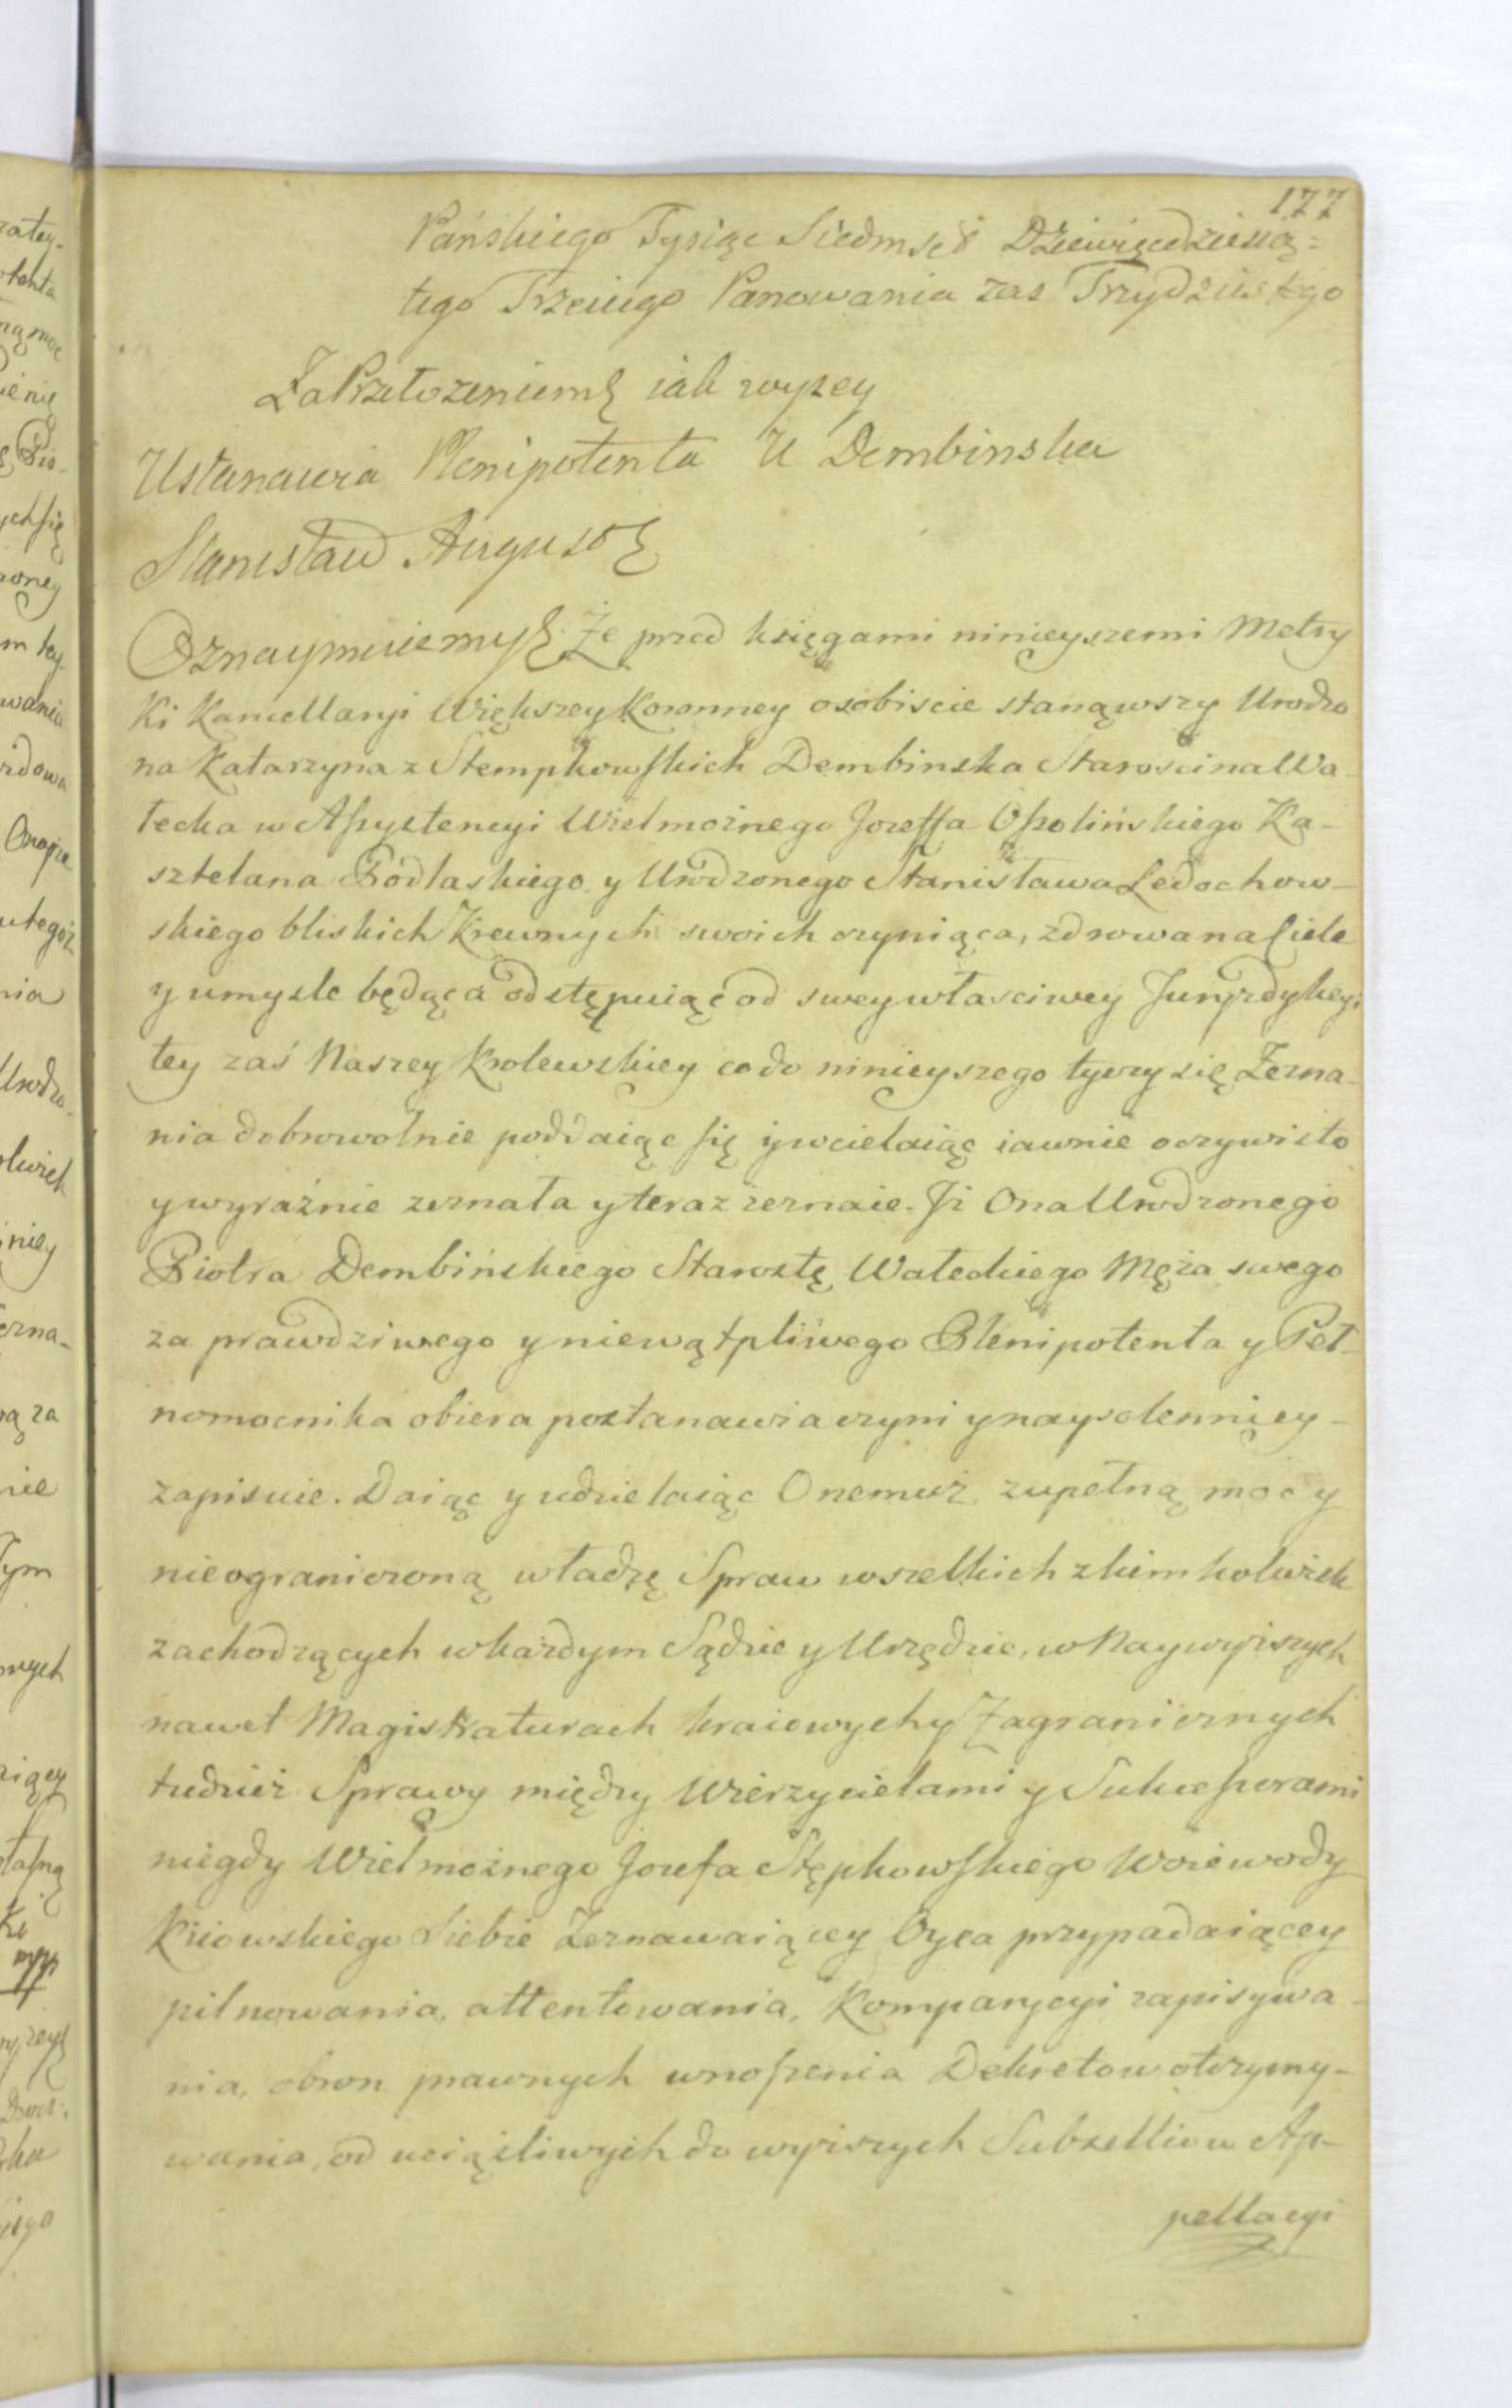 177
Pańskiego Tysiąc Siedmset Dziewięcdziesią=
tego Trzeciego Panowania zas Trzydziestego
Za Przełozeniem iak wyzey
Ustanawia Plenipotenta U Dembinska
Stanisław August
Oznaymuiemy Że przed księgami ninieyszemi Metry
ki Kancellaryi Większey Koronney osobiscie stanąwszy Urodzo
na Katarzyna z Stempkowskich Dembinska Staroscina Wa-
łecka w Assystencyi Wielmożnego Jozeffa Ossolińskiego Ka-
sztelana Podlaskiego y Urodzonego Stanisława Ledochow-
skiego bliskich Krewnych swoich czyniąca, zdrowa na Ciele
y umysle będąca odstępuiąc od swey własciwey Juryzdykcyi
tey zaś Naszey Krolewskiey co do ninieyszego tyczy się Zezna-
nia dobrowolnie poddaiąc się y wcielaiąc iawnie oczywisto
y wyraźnie zeznała y teraz zeznaie. Iż Ona Urodzonego
Piotra Dembińskiego Starostę Wałeckiego Męża swego
za prawdziwego y niewątpliwego Plenipotenta y Peł-
nomocnika obiera postanawia czyni y naysolenniey-
zapisuie. Daiąc y udzielaiąc Onemuż zupełną moc y
nieograniczoną władzę Spraw wszelkich z kimkolwiek
zachodzących w każdym Sądzie y Urzędzie, w Naywyższych
nawet Magistraturach kraiowych y Zagranicznych
tudzież Sprawy między Wierzycielami y Sukcessorami
niegdy Wielmożnego Jozefa Stępkowskiego Woiewody
Kiiowskiego Siebie Zeznawaiącey Oyca przypadaiącey
pilnowania, attentowania, Komparycyi zapisywa-
nia, obron prawnych wnoszenia Dekretow otrzymy-
wania, od uciążliwych do wyższych Subselliow Ap-
pellacyi